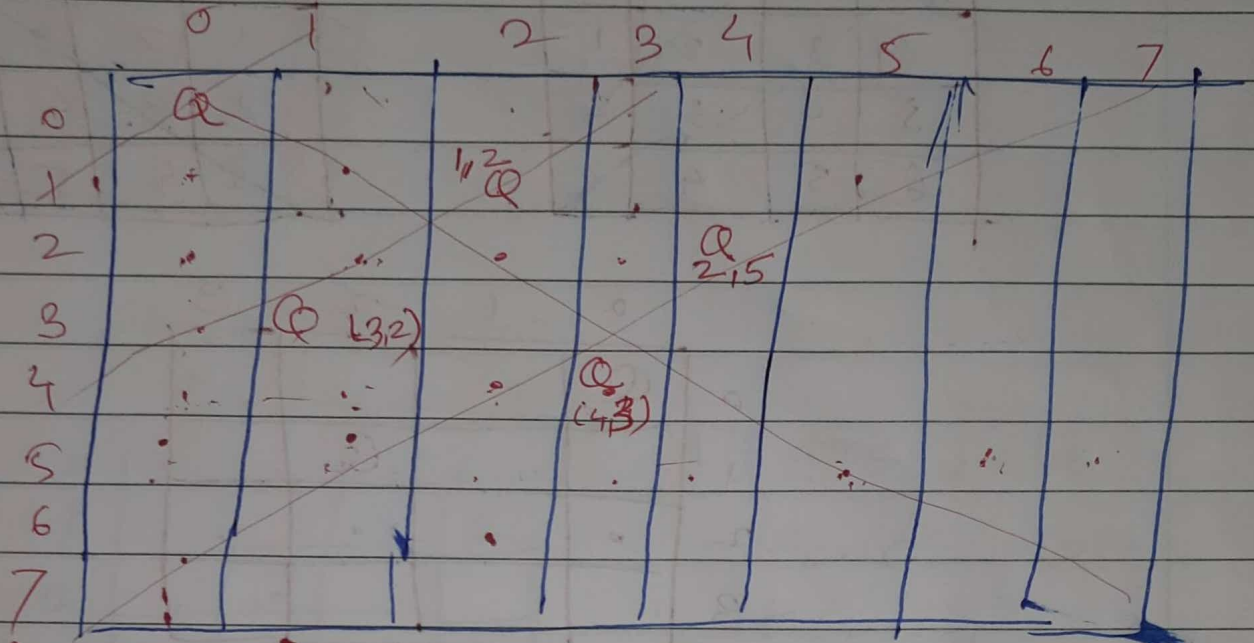 0 1 2 3 4 5 6 7
0 Q
1 1,2 Q
2 Q
2,5
3 Q (3,2)
4 Q
(4,3)
5
6
7